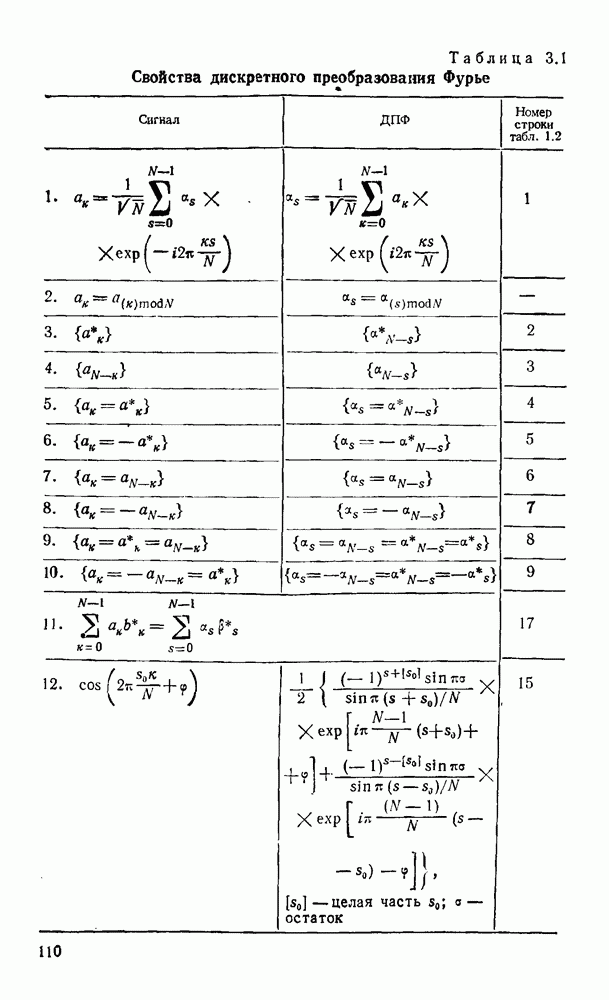 Таблица 3.1
Свойства дискретного преобразования Фурье
Сигнал | ДПФ | Номер строки табл. 1.2
1. a_к = 1/√N ∑_{s=0}^{N—1} α_s × × exp(— i2π кs/N) | α_s = 1/√N ∑_{к=0}^{N—1} a_к × × exp(i2π кs/N) | 1
2. a_к = a_{(к)modN} | α_s = α_{(s)modN} | —
3. {a*_к} | {α*_{N—s}} | 2
4. {a_{N—к}} | {α_{N—s}} | 3
5. {a_к = a*_к} | {α_s = α*_{N—s}} | 4
6. {a_к = — a*_к} | {α_s = — α*_{N—s}} | 5
7. {a_к = a_{N—к}} | {α_s = α_{N—s}} | 6
8. {a_к = — a_{N—к}} | {α_s = — α_{N—s}} | 7
9. {a_к = a*_к = a_{N—к}} | {α_s = α_{N—s} = α*_{N—s} = α*_s} | 8
10. {a_к = — a_{N—к} = a*_к} | {α_s = —α_{N—s} = α*_{N—s} = —α*_s} | 9
11. ∑_{к=0}^{N—1} a_к b*_к = ∑_{s=0}^{N—1} α_s β*_s | 17
12. cos(2π s₀к/N + φ) | 1/2 { (— 1)^{s+[s₀]} sin πσ / sin π (s + s₀)/N × | 15
× exp[iπ N—1/N (s+s₀)+
+φ] + (— 1)^{s—[s₀]} sin πσ / sin π (s — s₀)/N ×
× exp[iπ (N — 1)/N (s —
— s₀) — φ]},
[s₀] — целая часть s₀; σ —
остаток
110